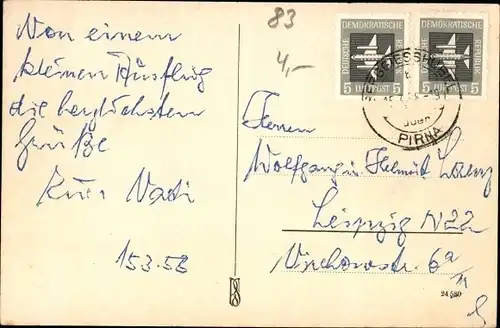 83
4,-
Von einem
kleinen Ausflug
die herzlichsten
Grüße
Euer Vati
15.3.58
DEUTSCHE DEMOKRATISCHE REPUBLIK
5 LUFTPOST 5
DEUTSCHE DEMOKRATISCHE REPUBLIK
5 LUFTPOST 5
PIRNA
Herren
Wolfgang u Helmut
Leipzig N22
Virchowstr. 6a
24 580